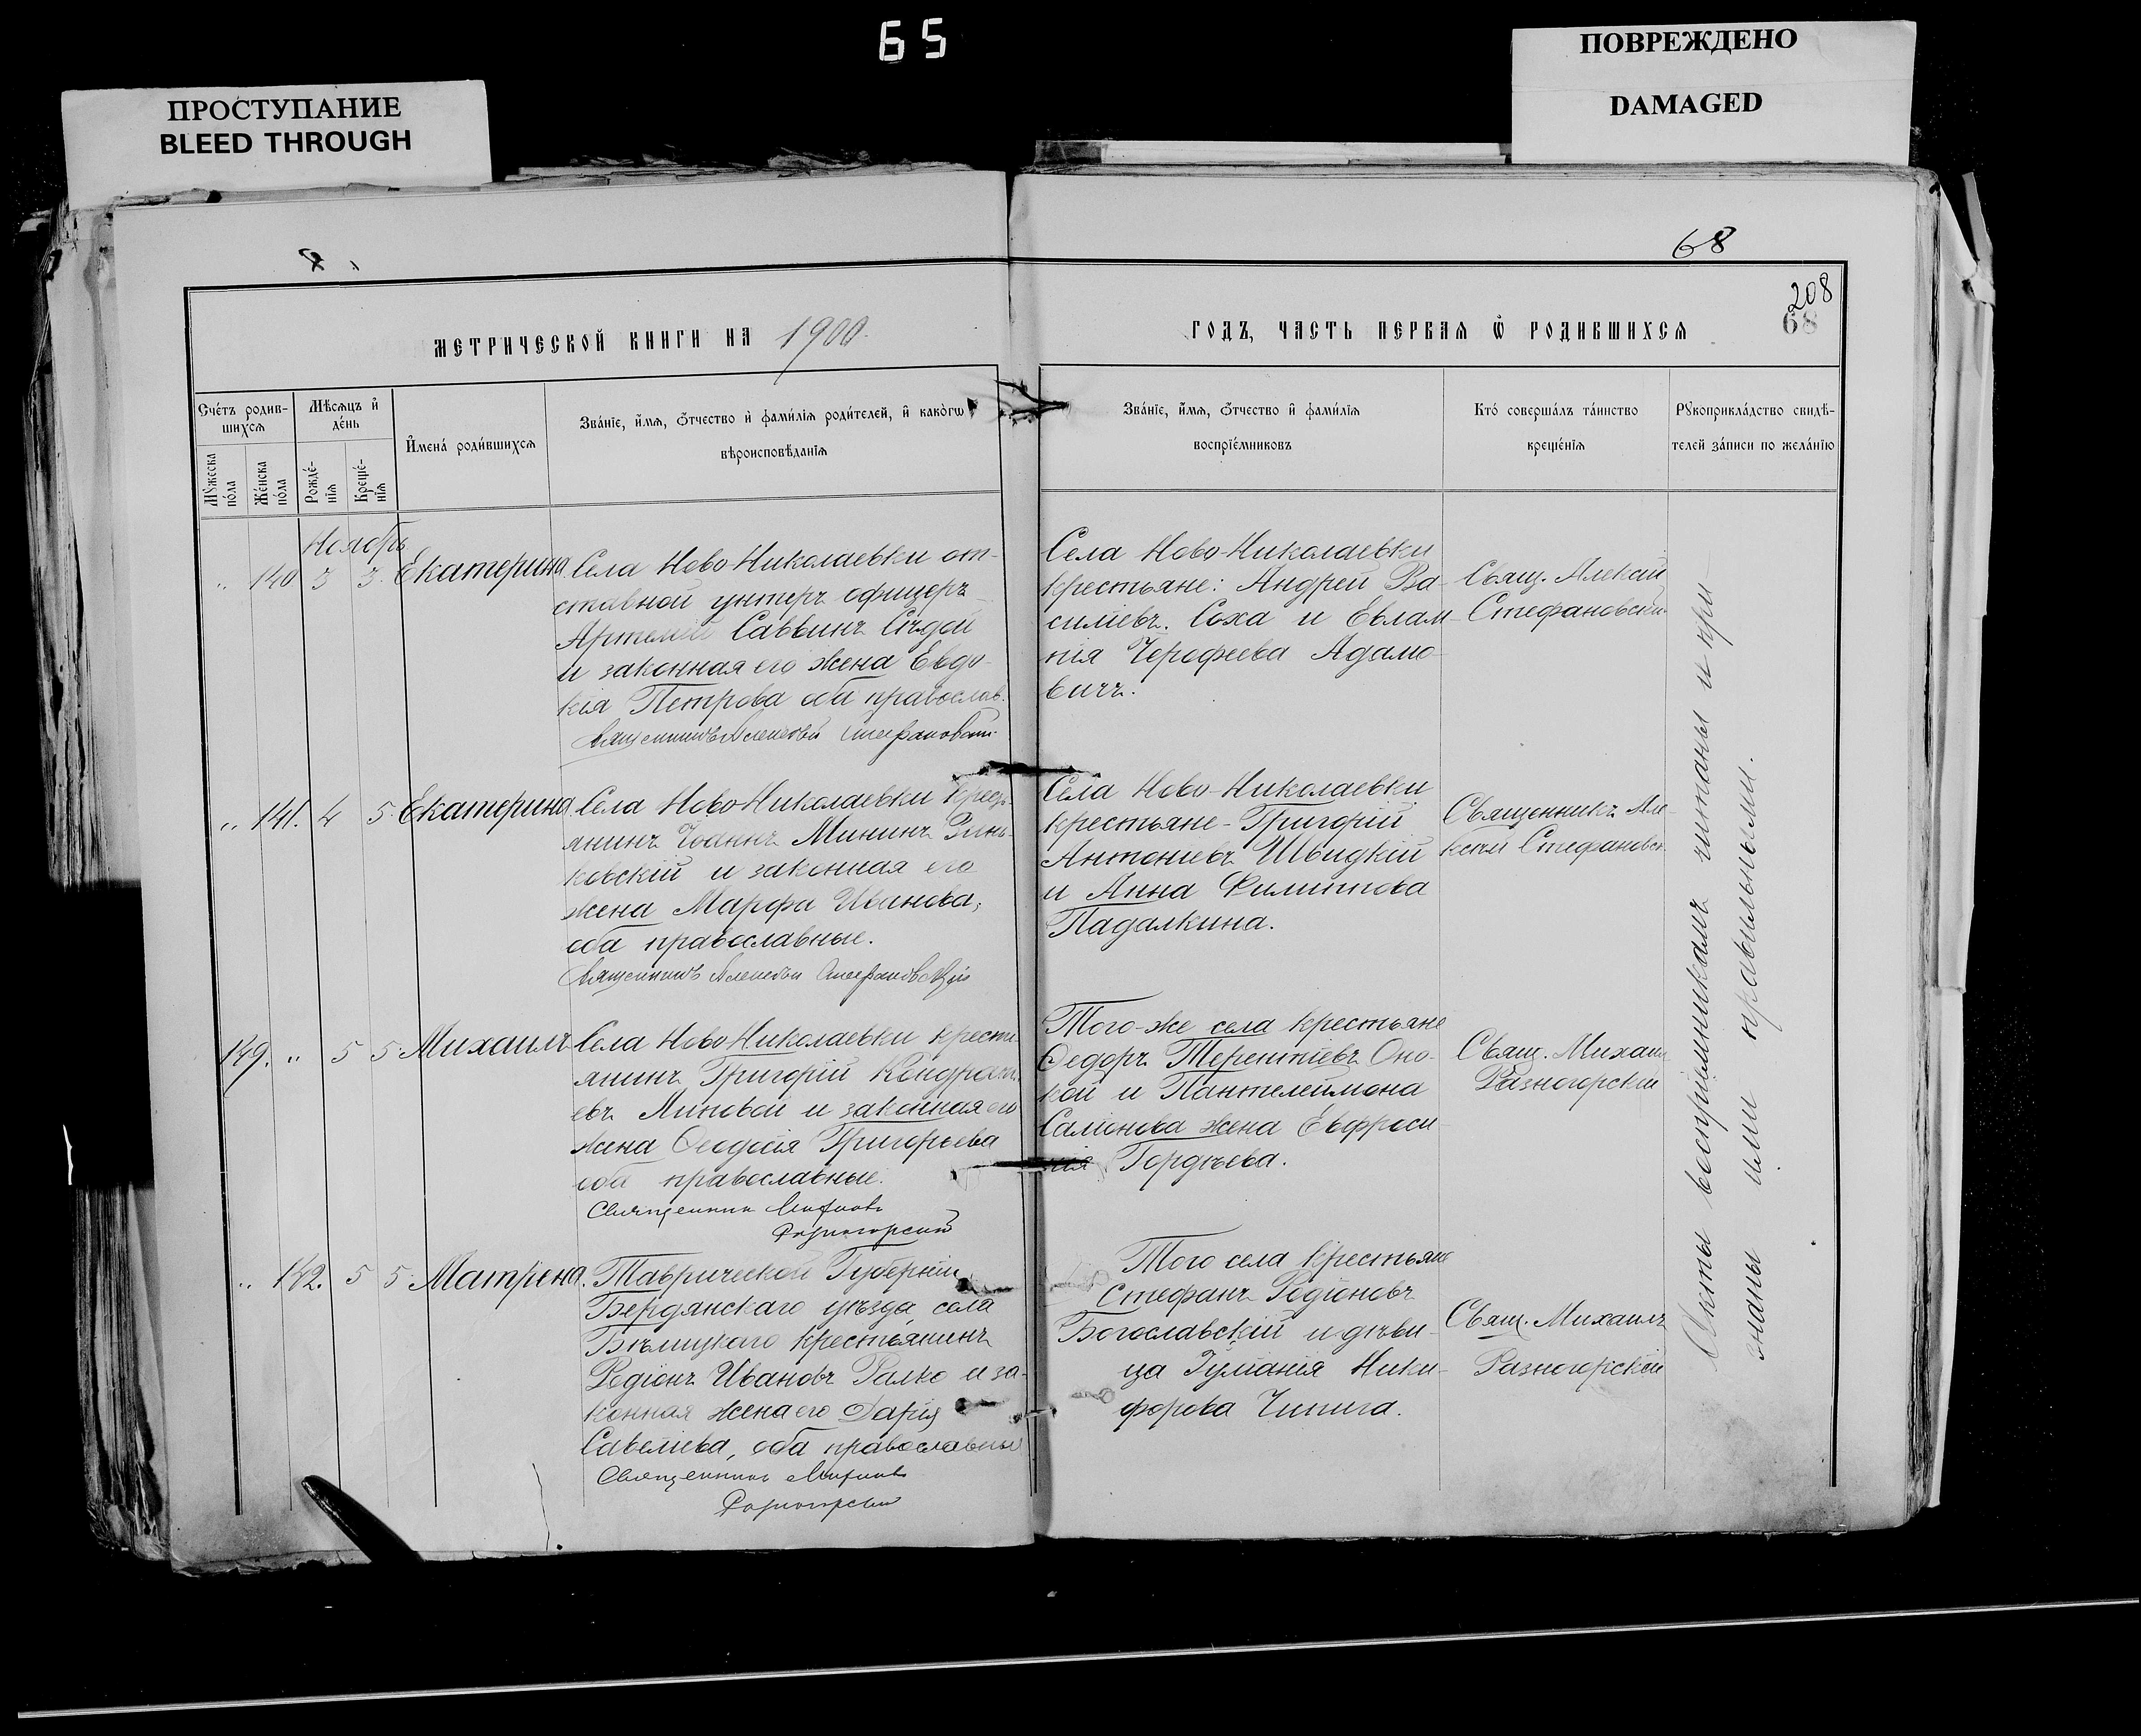 65
ПРОСТУПАНИЕ
BLEED THROUGH
ПОВРЕЖДЕНО
DAMAGED
68
208
68
МЕТРИЧЕСКОЙ КНИГИ НА 1900
ГОДЪ, ЧАСТЬ ПЕРВАѦ Ѡ РОДИВШИХСѦ
Счéтъ родив-
шихсѧ
Мѣсѧцъ и҆
дéнь
Мꙋжеска
пóла
Жéнска
пóла
Рождé-
нїѧ
Крещé-
нїѧ
И҆мена́ роди́вшихсѧ
Зва́нїе, и҆́мѧ, ѻ҆́тчество и҆ фами́лїѧ роди́телей, и҆ како́гѡ
вѣроисповѣ́данїѧ
Зва́нїе, и҆́мѧ, ѻ҆́тчество и҆ фами́лїѧ
воспрїе́мниковъ
Кто́ соверша́лъ та́инство
креще́нїѧ
Рꙋкоприкла́дство свидѣ́-
телей за́писи по жела́нїю
Ноябрь
„ 140 3 3. Екатерина
Села Ново-Николаевки от-
ставной унтеръ офицеръ
Саввинъ Сѣдой
и законная его жена Евдо-
кія Петрова оба православ.
Священникъ Алексѣй Стефановскій
Села Ново-Николаевки
крестьяне: Андрей Ва-
силіевъ Соха и Евлам-
пія Черофеева Адамо-
вичъ.
Свящ. Алексѣй
Стефановскій
„ 141. 4 5 Екатерина
Села Ново-Николаевки крест-
янинъ Іоаннъ Мининъ
и законная его
жена Марфа Иванова,
оба православные.
Священникъ Алексѣй Стефановскій
Села Ново-Николаевки
крестьяне - Григорій
Антоніевъ Швидкій
и Анна Филиппова
Падалкина.
Священникъ Але-
ксѣй Стефановск.
149. „ 5 5. Михаилъ
Села Ново-Николаевки крестья-
янинъ Григорій Кондрат-
евъ Линовой и законная его
жена Ѳеодосія Григорьева
оба православные.
Священникъ Михаилъ
Разногорскій
Того-же села крестьяне
Ѳедоръ Терентіевъ Оно-
кой и Пантелеимона
Самонова жена Евфроси-
нія Гордѣева.
Свящ. Михаил
Разногорскій
„ 142. 5 5 Матрена.
Таврической Губерніи
Бердянскаго уѣзда, села
Бѣлицкаго крестьянинъ
Родіонъ Ивановъ Галко и за-
конная жена его Дарія
Савеліева, оба православные
Священникъ Михаилъ
Разногорскій
Того села крестьяне
Стефанъ Родіоновъ
Богославскій и дѣви-
ца Іуліанія Ники-
форова Чипига.
Свящ. Михаилъ
Разногорскій
Акты воспріемникамъ читаны и при-
знаны ими правильными.